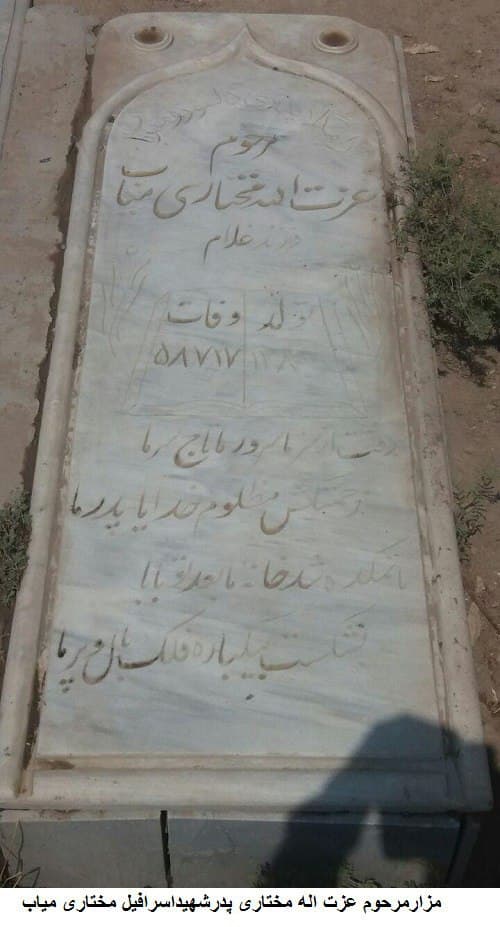 مرحوم
عزت الله مختاری میاب
فرزند غلام
تولد وفات
۵۸٫۷٫۱۷
رفت از بر ما سرور ما تاج سر ما
مظلوم خدایا پدر ما
ماتمکده شد خانه ما بعد تو بابا
بشکست بیکباره فلک بال و پر ما
مزارمرحوم عزت اله مختاری پدرشهیداسرافیل مختاری میاب